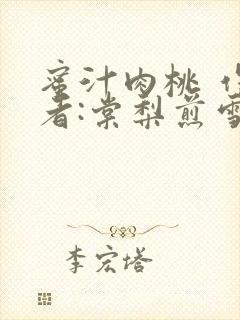 蜜汁肉桃 作
者:棠梨煎雪
李宏塔